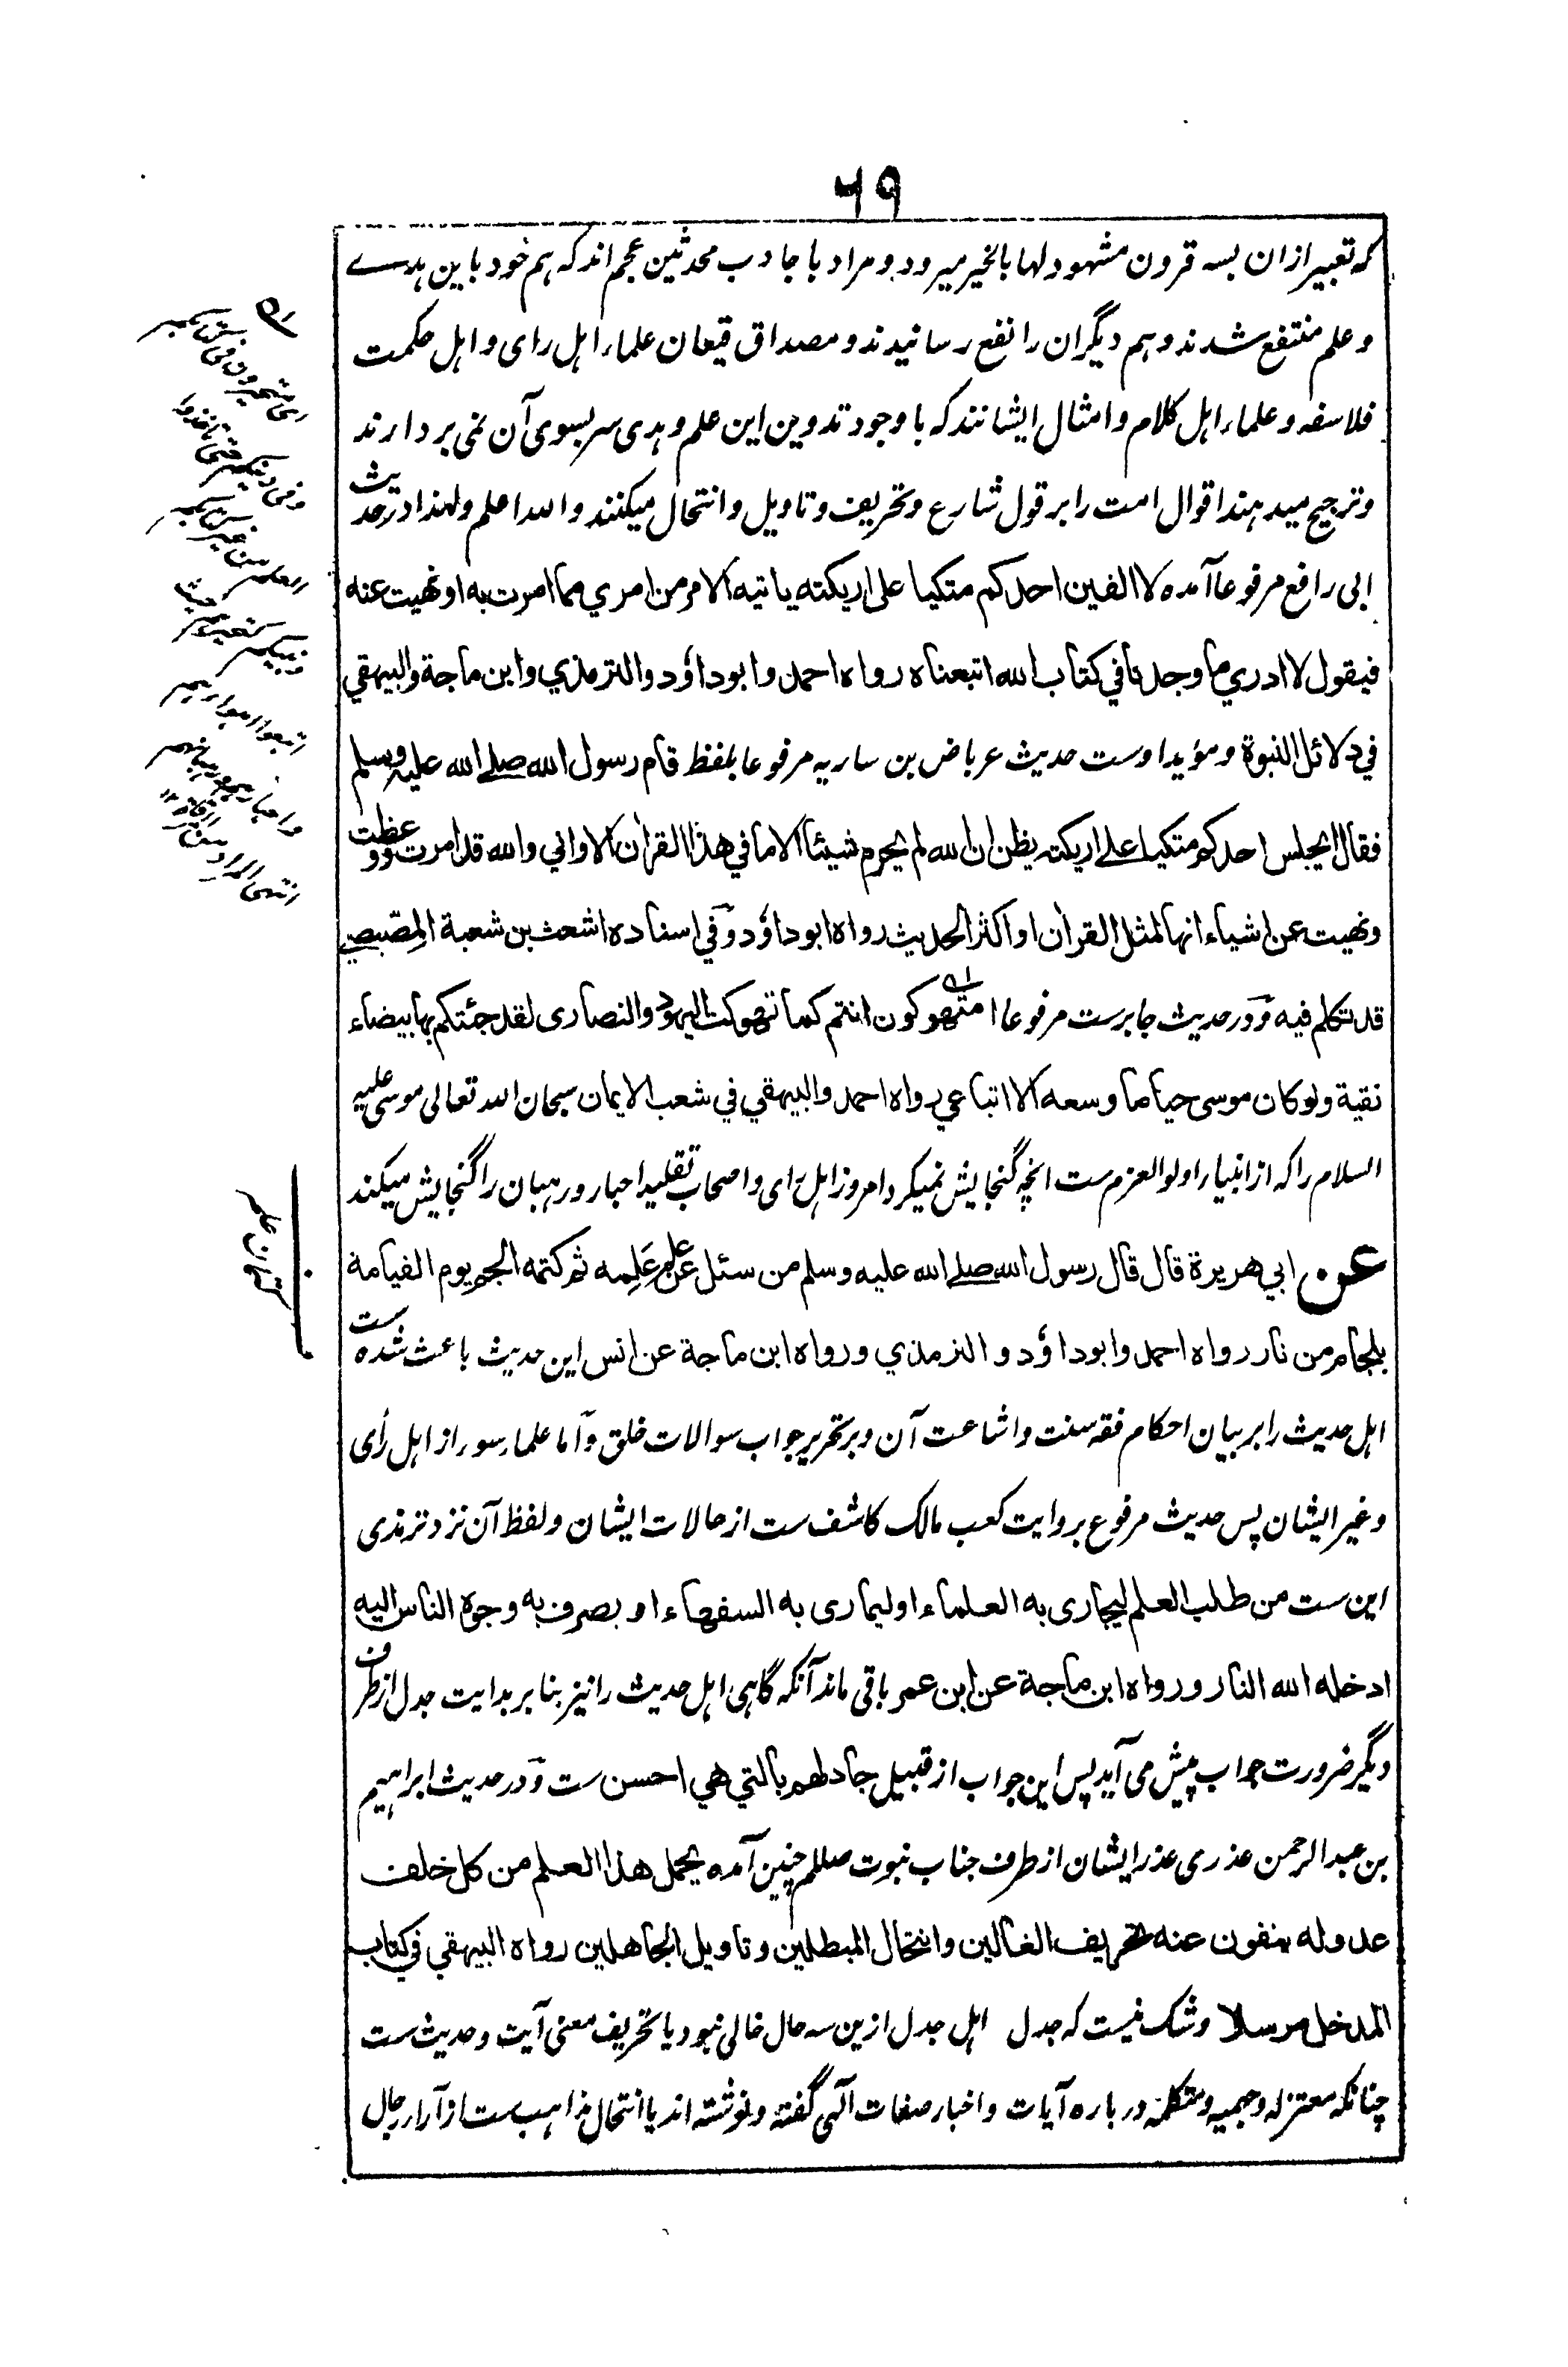 ۶۹
که تعبیر ازان بسه قرون مشهود لها بالخیر میرود و مراد با جادب محدثین عجم اند که هم خود باین هدے
و علم منتفع شدند و هم دیگران را نفع رسانیدند و مصداق قیعان علماء اهل رای و اهل حکمت
فلاسفه و علماء اهل کلام و امثال ایشانند که با وجود تدوین این علم و هدی سر بسوی آن نمی بردارند
و ترجیح میدهند اقوال امت را بر قول شارع و تحریف و تاویل و انتحال میکنند والله اعلم ولهذا در حدیث
ابی رافع مرفوعا آمده لا الفین احدکم متکیا علی اریکته یاتیه الامر من امري مما امرت به او نهیت عنه
فیقول لا ادري ما وجدنا في کتاب الله اتبعناه رواه احمد وابوداؤد والترمذي وابن ماجة والبیهقي
في دلائل النبوة و مؤید اوست حدیث عرباض بن ساریه مرفوعا بلفظ قام رسول الله صلے الله علیه وسلم
فقال ایجلس احدکم متکیا علے اریکته یظن ان الله لم یحرم شیئا الا ما في هذا القرآن الا واني والله قد امرت ووعظت
ونهیت عن اشیاء انها لمثل القرآن او اکثر الحدیث رواه ابوداؤد وفي اسناده اشعث بن شعبة المصّیصي
قد تکلم فیه و در حدیث جابرست مرفوعا امتهوکون انتم کما تهوکت الیهود والنصاری لقد جئتکم بها بیضاء
نقیة ولو کان موسی حیا ما وسعه الا اتباعي رواه احمد والبیهقي في شعب الایمان سبحان الله تعالی موسی علیه
السلام را که از انبیاء اولو العزم ست انچه گنجایش نمیکرد امروز اهل رای و اصحاب تقلید احبار و رهبان را گنجایش میکند
عن ابي هریرة قال قال رسول الله صلے الله علیه وسلم من سئل عن علم عَلِمه ثم کتمه الجم یوم القیامة
بلجام من نار رواه احمد وابوداؤد والترمذي ورواه ابن ماجة عن انس این حدیث باعث شده ست
اهل حدیث را بر بیان احکام فقه سنت و اشاعت آن و بر تحریر جواب سوالات خلق و اما علماء سوء از اهل رأی
و غیر ایشان پس حدیث مرفوع بروایت کعب مالک کاشف ست از حالات ایشان و لفظ آن نزد ترمذی
این ست من طلب العلم لیجاری به العلماء او لیماری به السفهاء او یصرف به وجوه الناس الیه
ادخله الله النار ورواه ابن ماجة عن ابن عمر باقی ماند آنکه گاهی اهل حدیث را نیز بنا بر بدایت جدل از طرف
دیگر ضرورت جواب پیش می آید پس این جواب از قبیل جادلهم بالتي هي احسن ست و در حدیث ابراهیم
بن عبد الرحمن عذری عذر ایشان از طرف جناب نبوت صللم چنین آمده یحمل هذا العلم من کل خلف
عدوله ینفون عنه تحریف الغالین وانتحال المبطلین وتاویل الجاهلین رواه البیهقي في کتاب
المدخل مرسلا و شک نیست که جدل اهل جدل ازین سه حال خالی نبود یا تحریف معنی آیت و حدیث ست
چنانکه معتزله و جهمیه و متکلمه درباره آیات و اخبار صفات الهی گفته و نوشته اند یا انتحال مذاهب ست از آراء رجال
کتمان علم